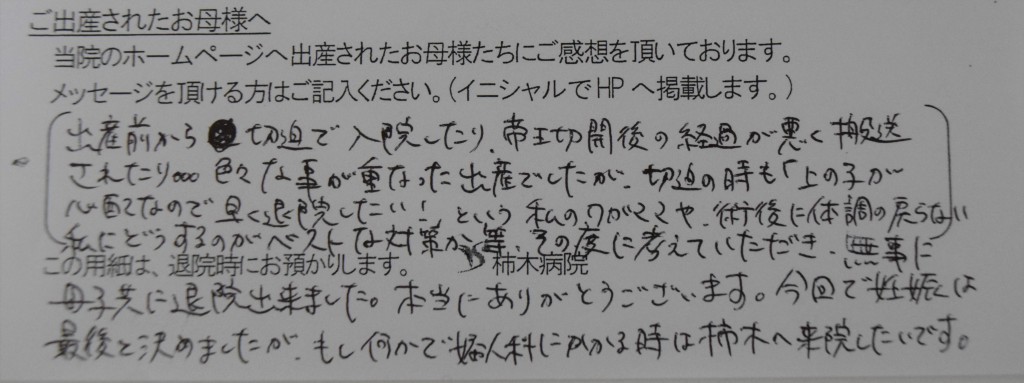 ご出産されたお母様へ
当院のホームページへ出産されたお母様たちにご感想を頂いております。
メッセージを頂ける方はご記入ください。(イニシャルでHPへ掲載します。)
出産前から切迫で入院したり、帝王切開後の経過が悪く搬送
されたり。。。色々な事が重なった出産でしたが、切迫の時も「上の子が
心配なので早く退院したい!」という私のワガママや、術後に体調の戻らない
私にどうするのがベストな対策か等、その度に考えていただき、無事に
この用紙は、退院時にお預かりします。 柿木病院
母子共に退院出来ました。本当にありがとうございます。今回で妊娠は
最後と決めましたが、もし何かで婦人科にかかる時は柿木へ来院したいです。